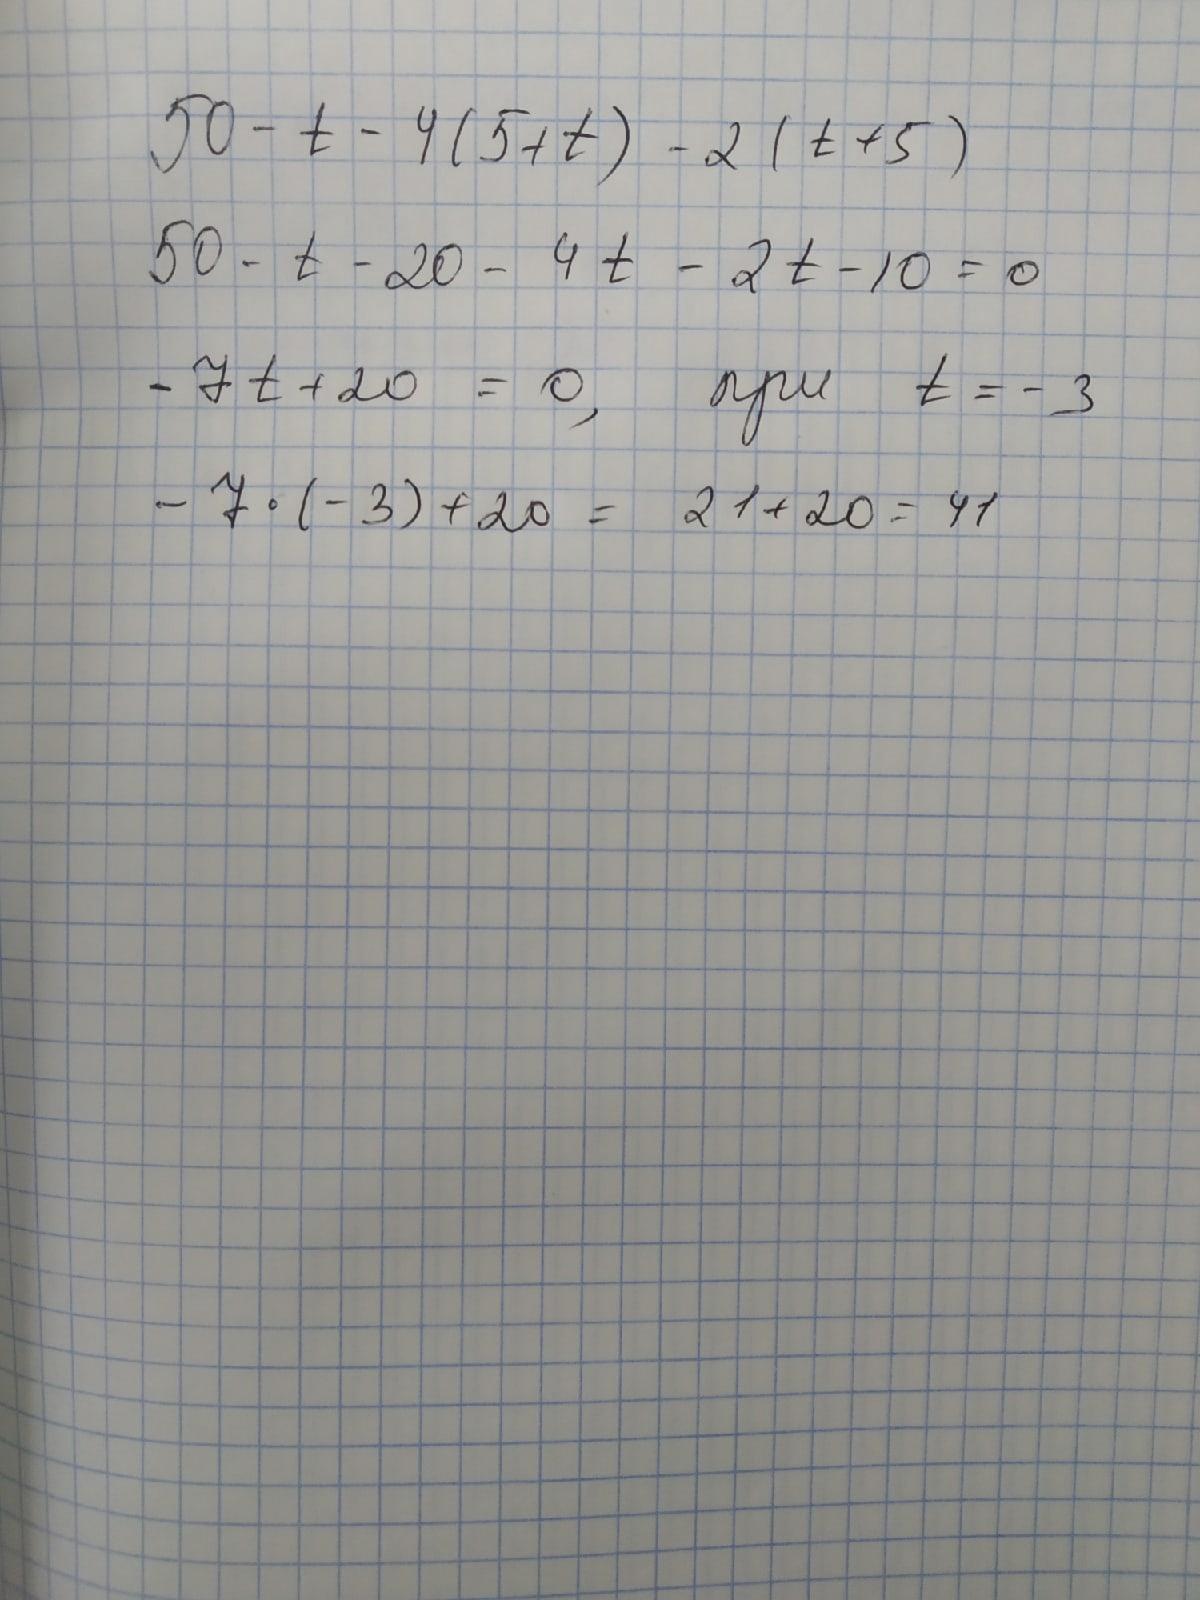 50 - t - 4(5+t) - 2(t+5)
50 - t - 20 - 4t - 2t - 10 = 0
- 7t + 20 = 0, при t = - 3
- 7 · (- 3) + 20 = 21 + 20 = 41